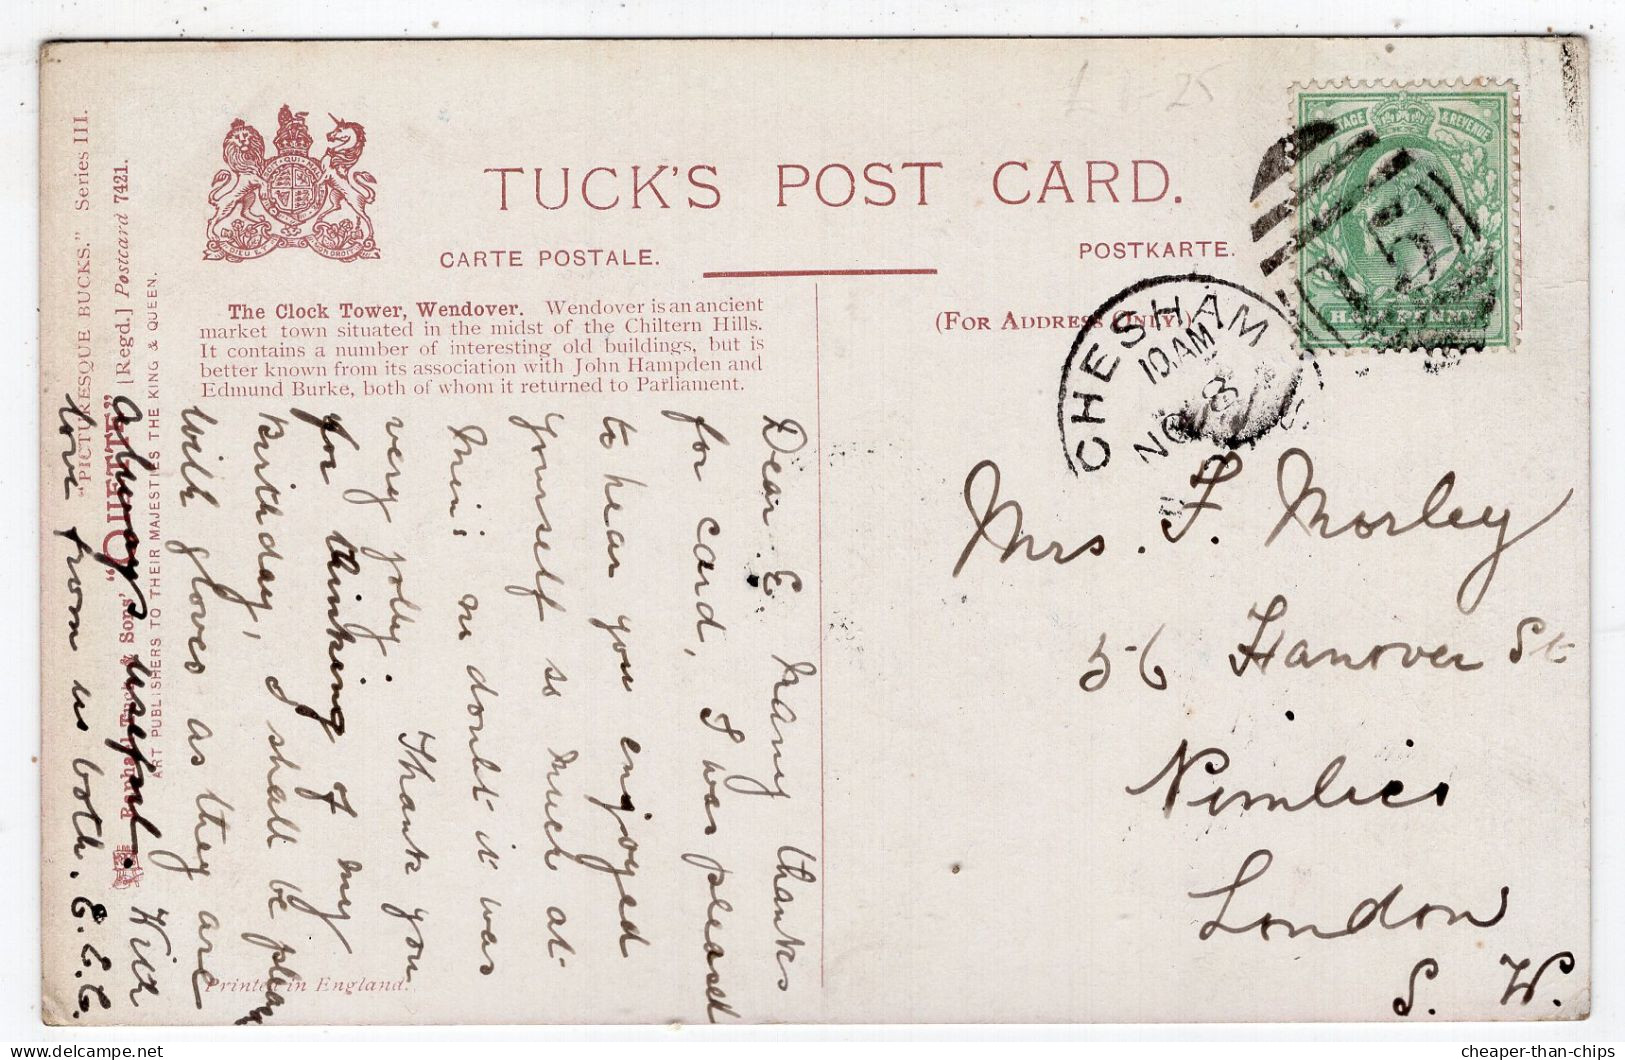 TUCK'S POST CARD.
CARTE POSTALE.
POSTKARTE.
POSTAGE & REVENUE
HALF PENNY
The Clock Tower, Wendover. Wendover is an ancient
market town situated in the midst of the Chiltern Hills.
It contains a number of interesting old buildings, but is
better known from its association with John Hampden and
Edmund Burke, both of whom it returned to Parliament.
(FOR ADDRESS ONLY.)
CHESHAM
10 AM
NO 8
Mrs. F. Morley
56 Hanover St
Pimlico
London
S. W.
Dear E. Many thanks
for card, I was pleased
to hear you enjoyed
yourself so much at
no doubt it was
very jolly. Thank you
for thinking of my
Birthday, I shall be
with gloves as they are
always useful. With
love from us both. E.E.C.
"PICTURESQUE BUCKS." Series III.
Raphael Tuck & Sons' "OILETTE" [Regd.] Postcard 7421.
ART PUBLISHERS TO THEIR MAJESTIES THE KING & QUEEN.
Printed in England.
www.delcampe.net
cheaper-than-chips